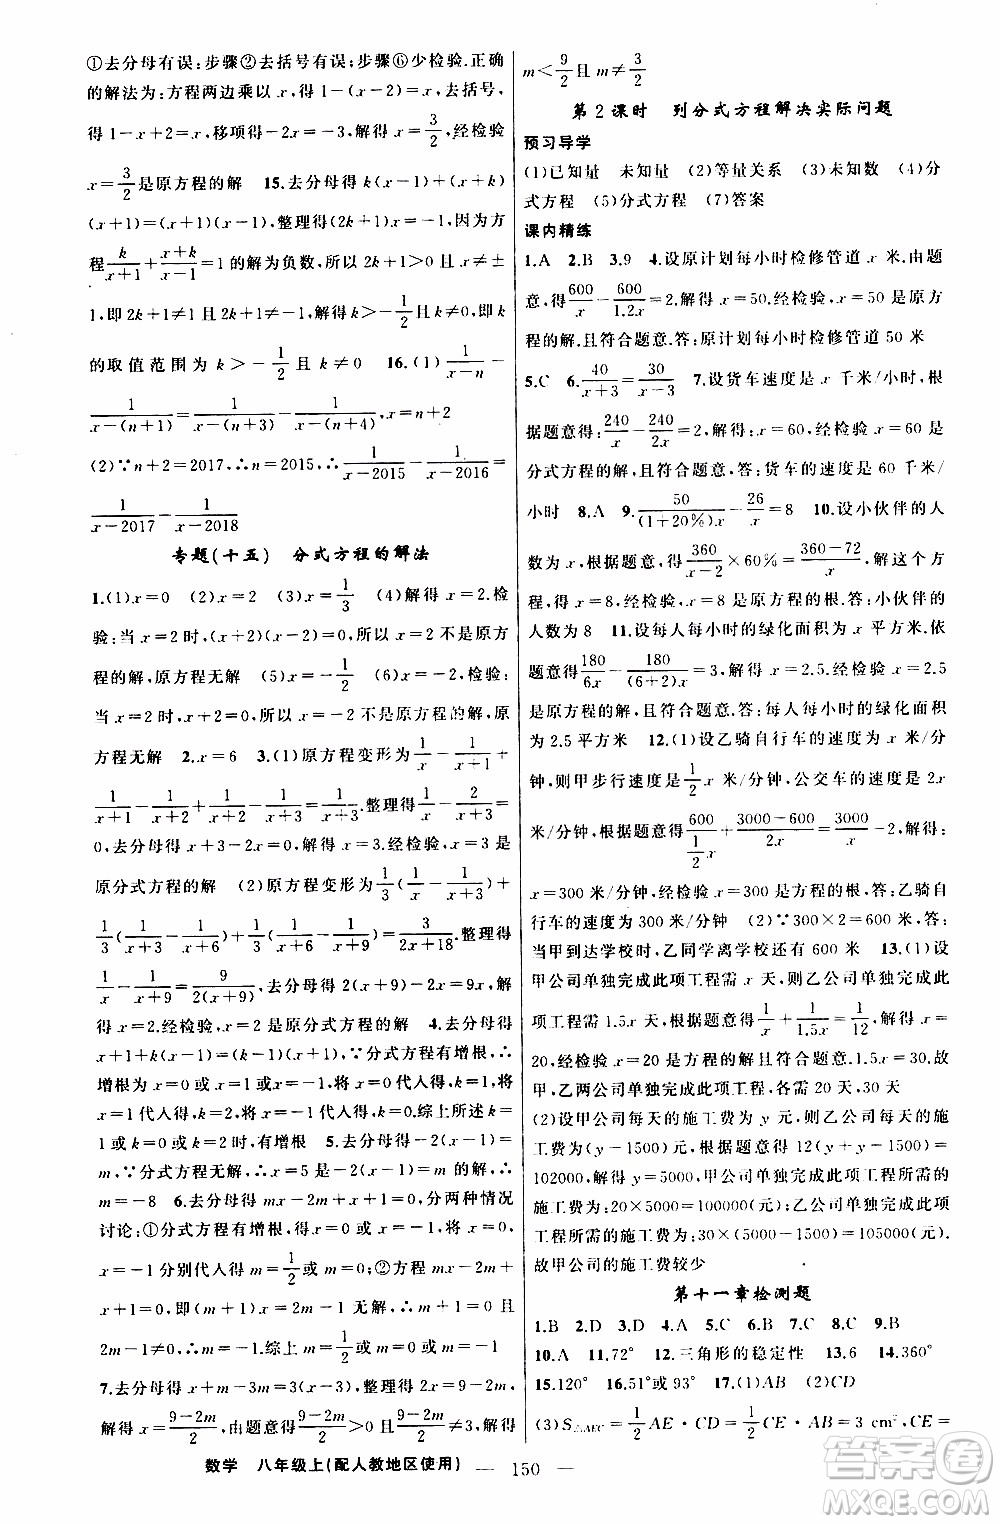 ①去分母有误;步骤②去括号有误;步骤⑥少检验.正确
的解法为:方程两边乘以 x,得 1-(x-2)=x,去括号,
得 1-x+2=x,移项得-2x=-3,解得 x=3/2,经检验
x=3/2是原方程的解 15.去分母得 k(x-1)+(x+k)
(x+1)=(x+1)(x-1),整理得(2k+1)x=-1,∵方
程k/(x+1)+(x+k)/(x-1)=1 的解为负数,所以 2k+1>0 且 x≠±
1,即 2k+1≠1 且 2k+1≠-1,解得 k>-1/2且 k≠0,即 k
的取值范围为 k>-1/2且 k≠0 16.(1)1/(x-n)-
1/(x-(n+1))=1/(x-(n+3))-1/(x-(n+4)),x=n+2
(2)∵n+2=2017,∴n=2015,∴1/(x-2015)-1/(x-2016)=
1/(x-2017)-1/(x-2018)
专题(十五) 分式方程的解法
1.(1)x=0 (2)x=2 (3)x=1/3 (4)解得 x=2.检
验:当 x=2 时,(x+2)(x-2)=0,所以 x=2 不是原方
程的解,原方程无解 (5)x=-1/2 (6)x=-2,检验:
当 x=2 时,x+2=0,所以 x=-2 不是原方程的解,原
方程无解 2.x=6 3.(1)原方程变形为1/x-1/(x+1)+
1/(x+1)-1/(x+2)+1/(x+2)-1/(x+3)=1/(x+3).整理得1/x-2/(x+3)=
0,去分母得 x+3-2x=0,解得 x=3.经检验,x=3 是
原分式方程的解 (2)原方程变形为1/3(1/x-1/(x+3))+
1/3(1/(x+3)-1/(x+6))+1/3(1/(x+6)-1/(x+9))=3/(2x+18).整理得
1/x-1/(x+9)=9/(2(x+9)),去分母得 2(x+9)-2x=9x,解
得 x=2.经检验,x=2 是原分式方程的解 4.去分母得
x+1+k(x-1)=0,∵分式方程有增根,∴
增根为 x=1 或 x=-1,将 x=-1 代人得 k=0,将
x=1 代人得 k=
1 或 k=0 时,分式方程有增根 5.去分母得 x-1=
m,∵分式方程无解,∴x=5 时原分式方程无解,∴
m=-8 6.去分母得 mx-1+m=x,分两种情况
讨论:①分式方程有增根,得 x=0 或 x=-1,当 x=0 或
x=-1 分别代人得 m=1/2;②方程 mx-x=1-2m,
x=0,即(m+1)x=2m,无解,∴m+1=0 且
2m≠0,∴m=-1.综上,m=1/2或-1
7.去分母得 x+m-3m=3x-9,整理得 2x=9-2m,
解得 x=(9-2m)/2,由题意得(9-2m)/2>0 且(9-2m)/2≠3,解得
m<9/2且 m≠3/2
第 2 课时 列分式方程解决实际问题
预习导学
(1)已知量 未知量 (2)等量关系 (3)未知数 (4)分
式方程 (5)分式方程 (7)答案
课内精练
1.A 2.B 3.9 4.设原计划每小时检修管道 x 米,由题
意,得600/x-600/1.2x=2,解得 x=50,经检验,x=50 是原方
程的解.且符合题意.答:原计划每小时检修管道 50 米
5.C 6.40/(x+3)=30/(x-3) 7.设货车速度是 x 千米/小时,根
据题意得:240/x-240/2x=2,解得:x=60,经检验 x=60 是
分式方程的解,且符合题意,答:货车的速度是 60 千米/
小时 8.A 9.50/((1+20%)x)-26/x=8 10.设小伙伴的人
数为 x,根据题意,得360/(x-2)×60%=(360-72)/x,解这个方
程,得 x=8,经检验,x=8 是原方程的根.答:小伙伴的
人数为 8 11.设每人每小时的绿化面积为 x 平方米.依
题意得180/6x-180/((6+2)x)=3,解得 x=2.5.经检验 x=2.5
是原方程的解,且符合题意.答:每人每小时的绿化面积
为 2.5 平方米 12.(1)设乙骑自行车的速度为 x 米/分
钟,则甲步行速度是1/2x 米/分钟,公交车的速度是 2x
米/分钟,根据题意得600/(1/2x)+(3000-600)/2x=3000/x-2,解得:
x=300 米/分钟,经检验 x=300 是方程的根,答:乙骑自
行车的速度为 300 米/分钟 (2)∵300×2=600 米,答:
当甲到达学校时,乙同学离学校还有 600 米 13.(1)设
甲公司单独完成此项工程需 x 天,则乙公司单独完成此
项工程需 1.5x 天,根据题意得:1/x+1/1.5x=1/12,解得 x=
20,经检验 x=20 是方程的解且符合题意.1.5x=30.故
甲,乙两公司单独完成此项工程,各需 20 天,30 天
(2)设甲公司每天的施工费为 y 元,则乙公司每天的施
工费为(y-1500)元,根据题意得 12(y+y-1500)=
102000,解得 y=5000,甲公司单独完成此项工程所需的
施工费为:20×5000=100000(元),乙公司单独完成此项
工程所需的施工费为:30×(5000-1500)=105000(元),
故甲公司的施工费较少
第十一章检测题
1.B 2.D 3.D 4.A 5.C 6.B 7.C 8.C 9.B
10.A 11.72° 12.三角形的稳定性 13.6 14.360°
15.120° 16.51°或 93° 17.(1)AB (2)CD
(3)S△AEC=1/2AE·CD=1/2CE·AB=3 cm²,CE=
数学 八年级上(配人教地区使用) — 150 —
答案圈
MXQE.COM